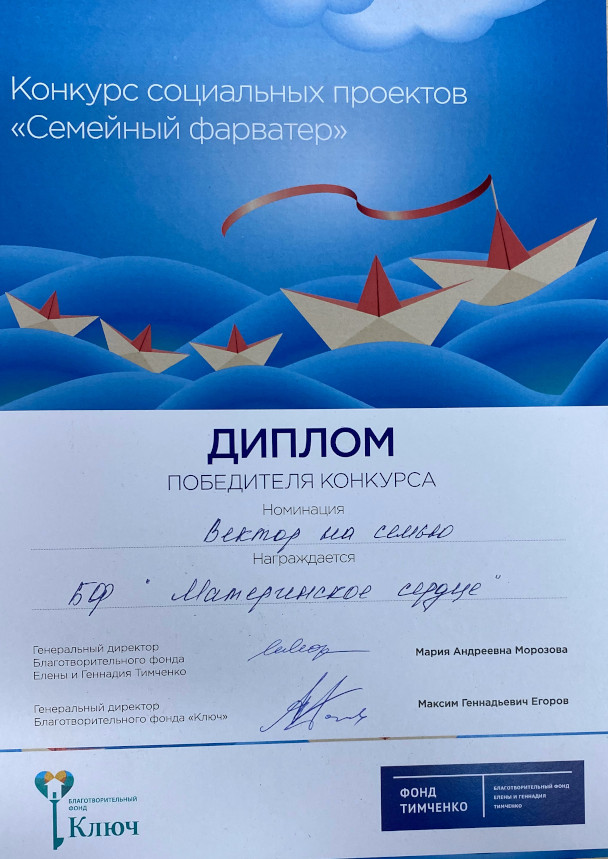 Конкурс социальных проектов
«Семейный фарватер»
ДИПЛОМ
ПОБЕДИТЕЛЯ КОНКУРСА
Номинация
Вектор на семью
Награждается
БФ "Материнское сердце"
Генеральный директор
Благотворительного фонда
Елены и Геннадия Тимченко
Мария Андреевна Морозова
Генеральный директор
Благотворительного фонда «Ключ»
Максим Геннадьевич Егоров
БЛАГОТВОРИТЕЛЬНЫЙ
ФОНД
Ключ
ФОНД
ТИМЧЕНКО
БЛАГОТВОРИТЕЛЬНЫЙ ФОНД
ЕЛЕНЫ И ГЕННАДИЯ
ТИМЧЕНКО